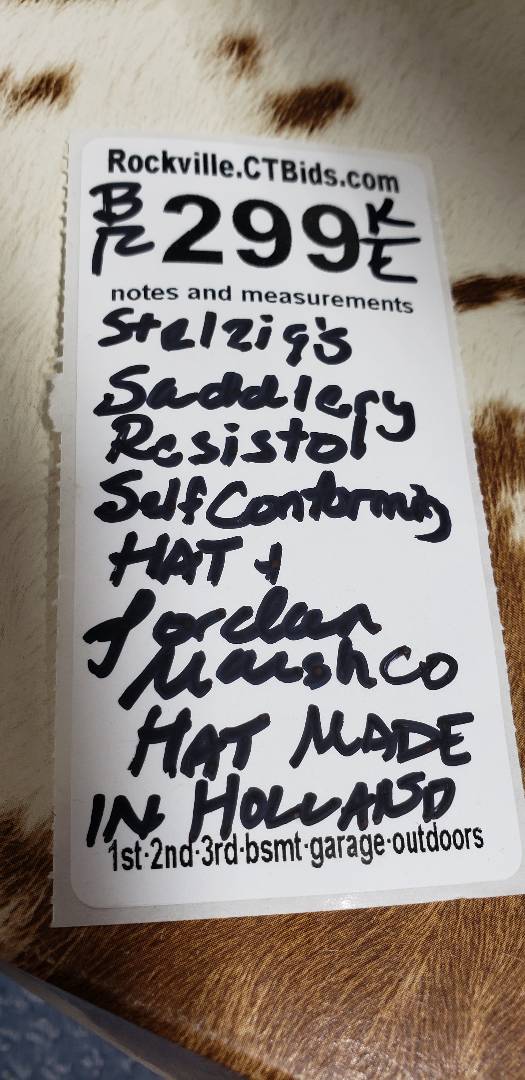 Rockville.CTBids.com
B 299 K
R E
notes and measurements
Stelzig's
Saddlery
Resistol
Self Conforming
HAT +
Jordan
Marsh Co
HAT MADE
IN HOLLAND
1st·2nd·3rd·bsmt·garage·outdoors